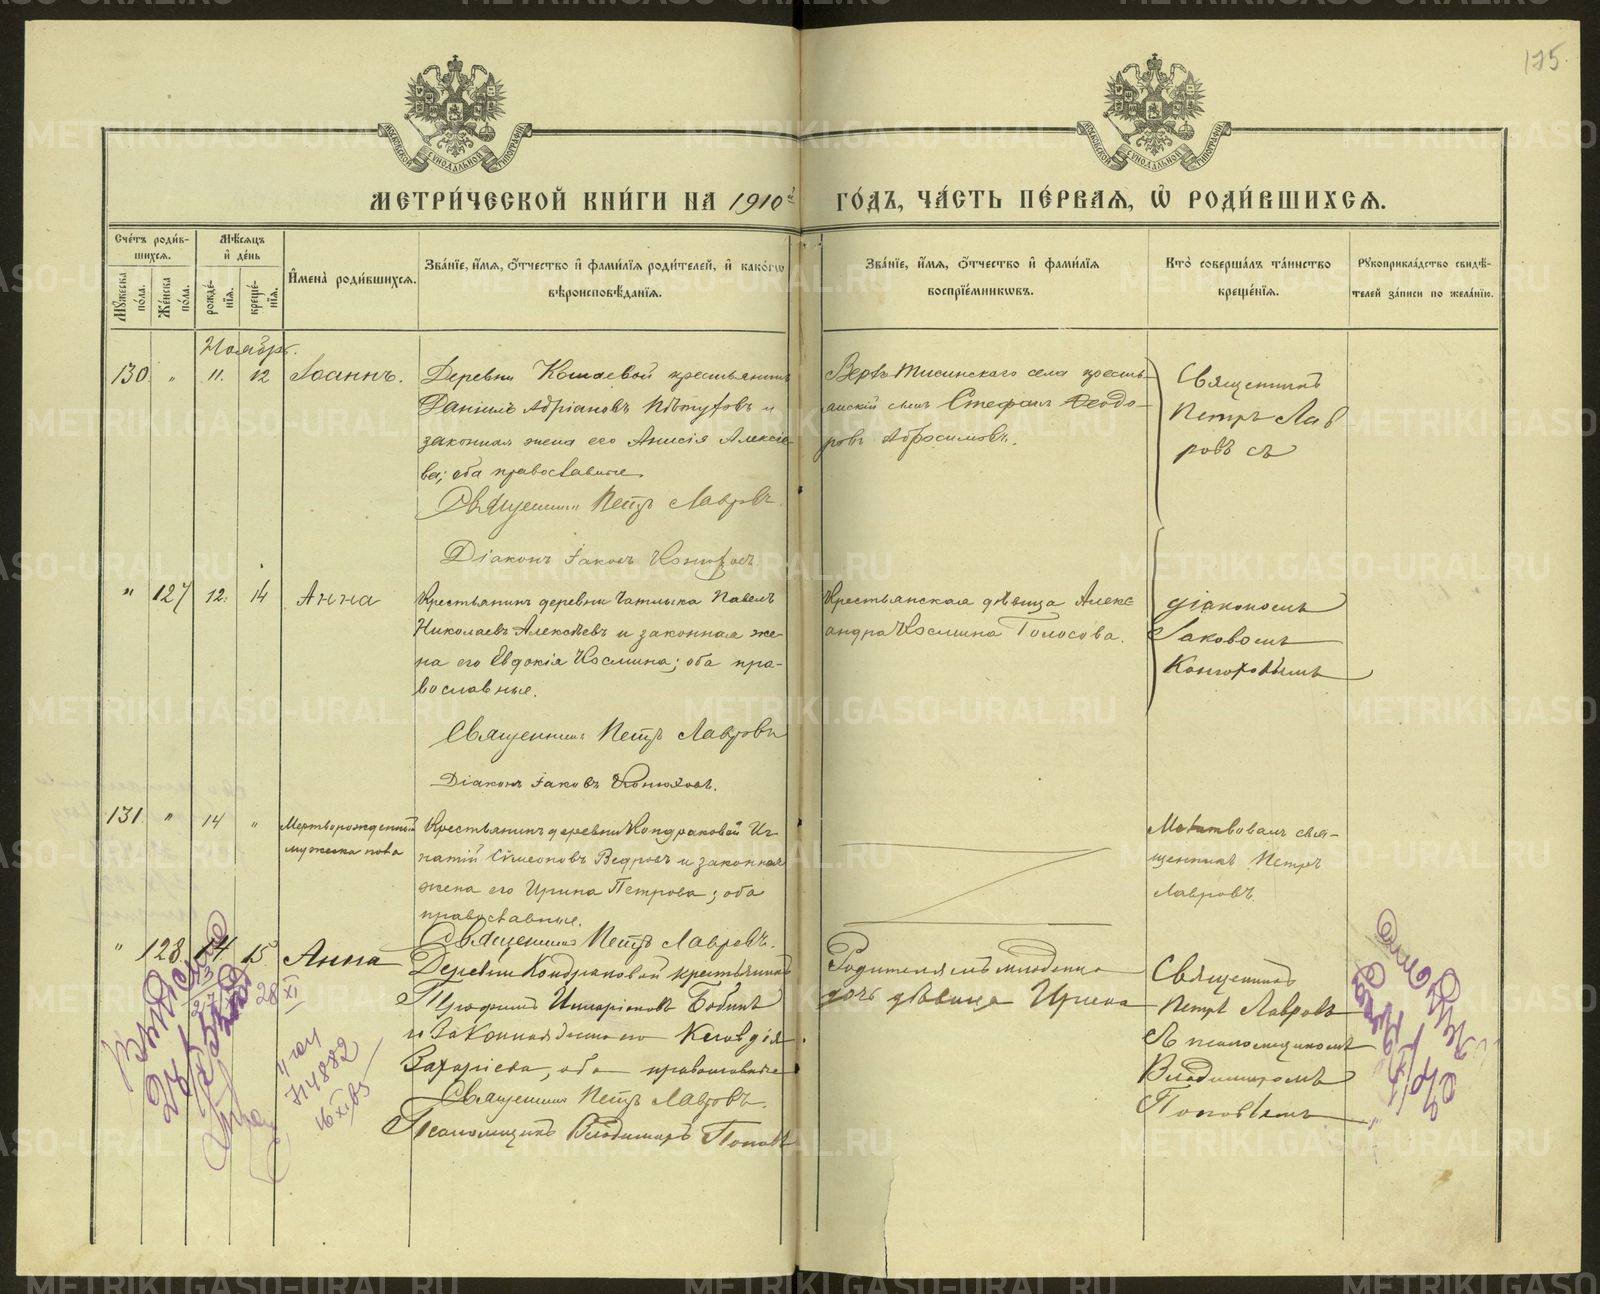 175.
МЕТРИ́ЧЕСКОЙ КНИ́ГИ НА 1910й ГО́ДЪ, ЧА́СТЬ ПЕ́РВАЯ, Ѡ РОДИ́ВШИХСЯ.
Сче́тъ роди́вшихся.
Му́жеска по́ла.
Же́нска по́ла.
Мѣ́сяцъ и де́нь
рожде́нїя.
креще́нїя.
Имена̀ роди́вшихся.
Зва́нїе, и́мя, о́тчество и фами́лїя роди́телей, и како́гѡ
вѣроисповѣ́данїя.
Зва́нїе, и́мя, о́тчество и фами́лїя
воспрїе́мникѡвъ.
Кто̀ соверша́лъ та́инство
креще́нїя.
Рукоприкла́дство свидѣ́-
телей за́писи по жела́нїю.
Ноябрь.
130. " 11. 12 Іоаннъ.
Деревни Кошаевой крестьянинъ
Даніилъ Адріановъ и
законная жена его Анисія Алексѣе-
ва; оба православные
Священникъ Петръ Лавровъ.
Діаконъ Іаковъ Конюховъ
Верхъ Тисинскаго села кресть-
янскій сынъ Стефанъ Ѳеодо-
ровъ Абросимовъ.
Священникъ
Петръ Лав
ровъ съ
" 127 12. 14 Анна
Крестьянинъ деревни Чатлыка Павелъ
Николаевъ Алексѣевъ и законная же-
на его Евдокія Косьмина; оба пра-
вославные.
Священникъ Петръ Лавровъ
Діаконъ Іаковъ Конюховъ.
Крестьянская дѣвица Алекс
андра Косьмина Голосова.
діакономъ
Іаковомъ
Конюховымъ
131. " 14 "
Мертворожденный
мужеска пола
Крестьянинъ деревни Кондраковой Иг-
натій Симеоновъ Ведровъ и законная
жена его Ирина Петрова; оба
православные.
Священникъ Петръ Лавровъ.
свя-
щенникъ Петръ
Лавровъ.
" 128. 14 15 Анна
Деревни Кондраковой крестьянинъ
Трофимъ Бабинъ
и законная жена его Клавдія
Захаріева, оба православные
Священникъ Петръ Лавровъ.
Псаломщикъ Владимиръ Поповъ
дочь дѣвица Ирина
Священникъ
Петръ Лавровъ
съ псаломщикомъ
Владимиромъ
Поповымъ
28
XI
714882